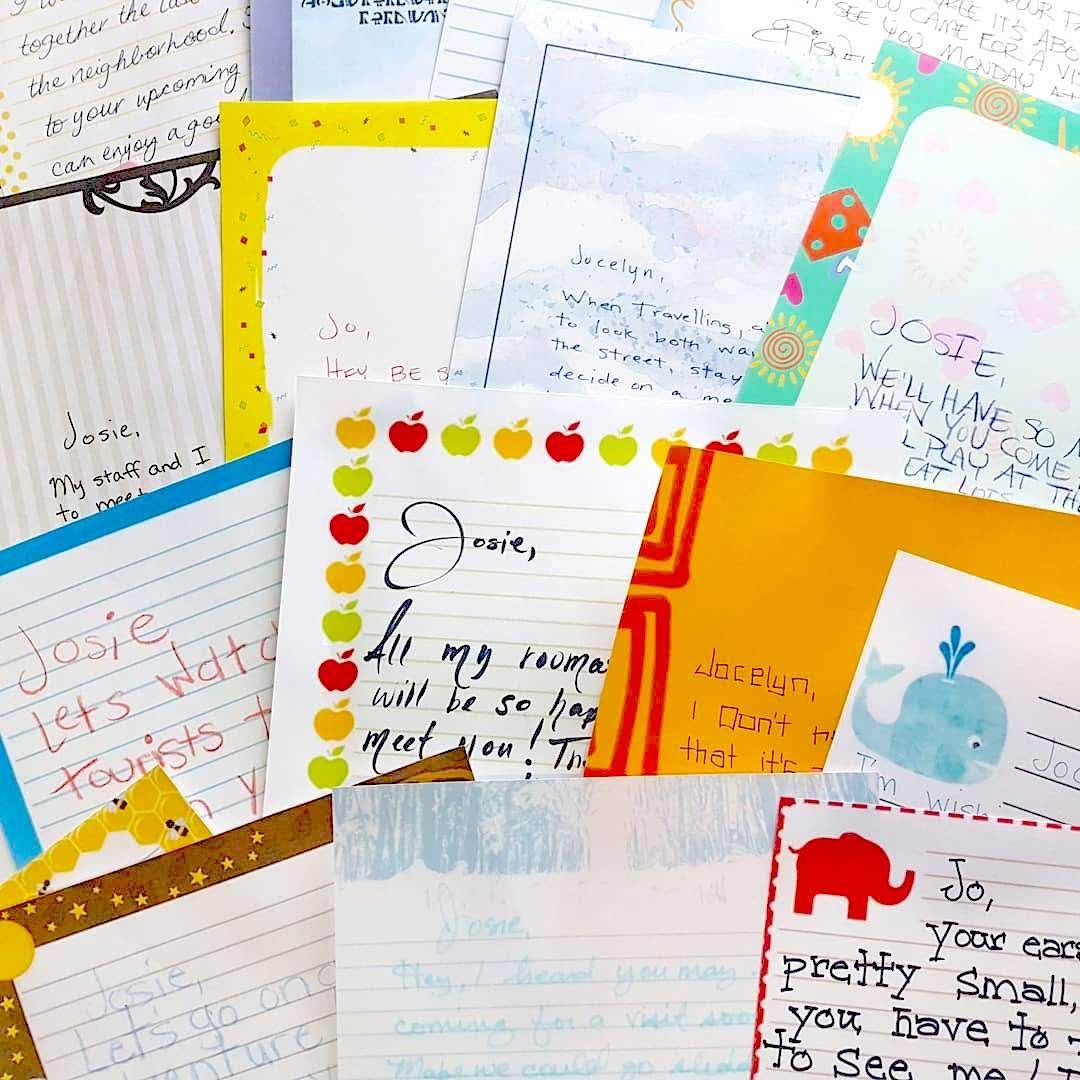 together the last
the neighborhood.
to your upcoming
can enjoy a good
SEE YOU MONDAY
CAME FOR A
IT'S ABO
Jo,
HEY, BE S
Jocelyn,
When Travelling, a
to look both wa
the street, stay
decide on a me
JOSIE,
WE'LL HAVE SO M
WHEN YOU COME
PLAY AT TH
EAT LOTS
Josie,
My staff and I
to meet
Josie,
All my rooma
will be so hap
meet you! Th
Josie
Lets watc
tourists t
Jocelyn,
I Don't
that it's
Joc
I'm Wishi
Josie,
Let's go on
enture
Josie,
Hey, I heard you may
coming for a visit soo
Maybe we could go sledd
Jo,
Your ears
pretty small,
you have to
to see me!